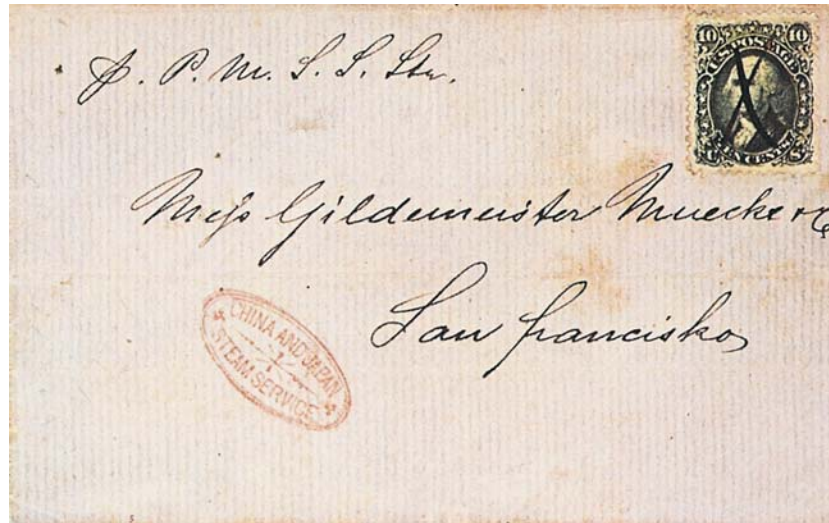 p. P. M. S. S. Str.
10 10
U.S. POSTAGE
TEN CENTS
U S
Mess Gildemeister Muecke & C
San francisko
CHINA AND JAPAN
STEAM SERVICE